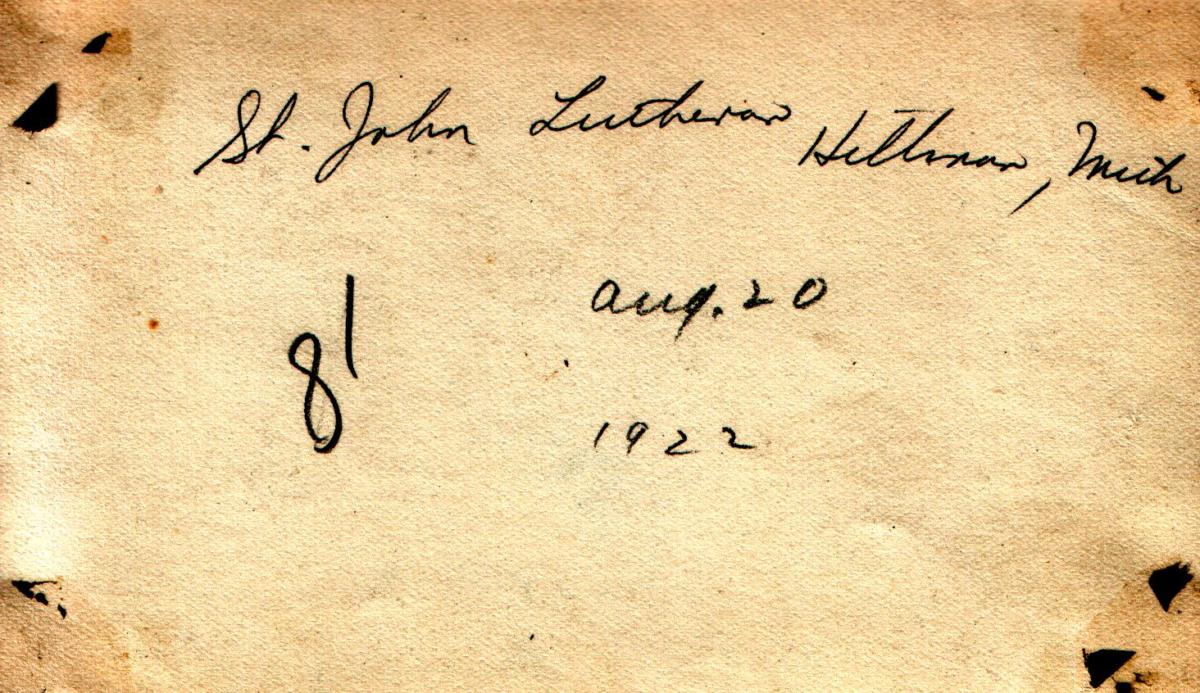 St. John Lutheran Hillman, Mich
8'
Aug. 20
1922